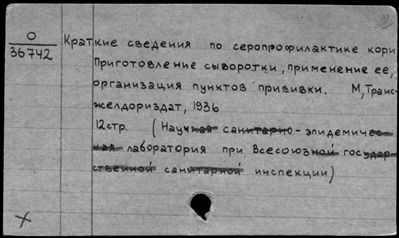 О
36742
Краткие сведения по серопрофилактике кори.
Приготовление сыворотки, применение ее,
организация пунктов прививки. М, Транс-
желдориздат, 1936
12стр. (Научная санитарно-эпидемичес-
кая лаборатория при Всесоюзной государ-
ственной санитарной инспекции)